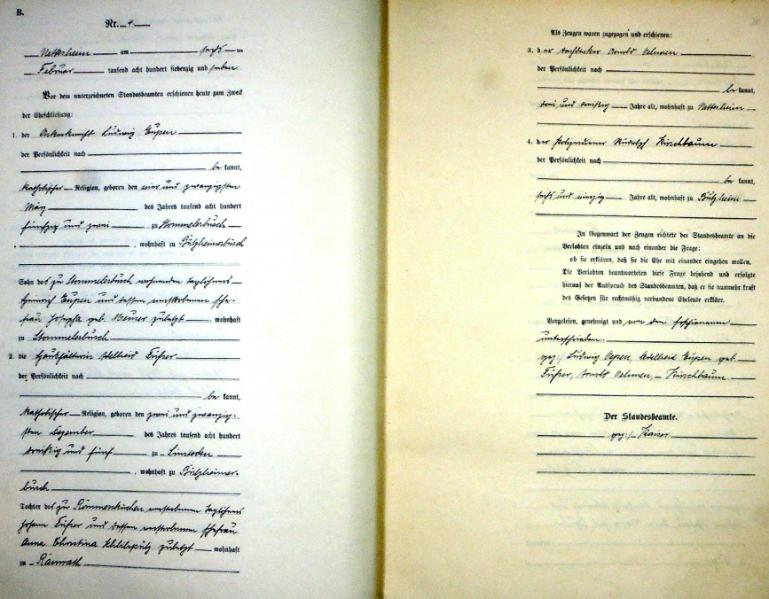 B.
Nr. 4
Nettesheim am sechs ten
Februar tausend acht hundert siebenzig und sieben
Vor dem unterzeichneten Standesbeamten erschienen heute zum Zweck
der Eheschließung:
1. der Ackerknecht Ludwig Eupen
der Persönlichkeit nach
be kannt,
katholischer Religion, geboren den vier und zwanzigsten
März des Jahres tausend acht hundert
fünfzig und zwei zu Stommelerbusch
, wohnhaft zu Bützheimerbusch
Sohn des zu Stommelerbusch wohnenden Taglöhners
Heinrich Eupen und dessen verstorbenen Ehe-
frau Josepha geb. zuletzt wohnhaft
zu Stommelerbusch
2. die Haushälterin Adelheid Führer
der Persönlichkeit nach
be kannt,
katholischer Religion, geboren den zwei und zwanzig-
sten Dezember des Jahres tausend acht hundert
dreißig und fünf zu
, wohnhaft zu Bützheimer-
busch
Tochter des zu Rommerskirchen verstorbenen Taglöhners
Johann Führer und dessen verstorbenen Ehefrau
Anna Christina zuletzt wohnhaft
zu Ramrath
Als Zeugen waren zugezogen und erschienen:
3. der Dachdecker Arnold Oelmen
der Persönlichkeit nach
be kannt,
drei und dreißig Jahre alt, wohnhaft zu Nettesheim
4. der Polizeidiener Rudolph Kirschbaum
der Persönlichkeit nach
be kannt,
sechs und Jahre alt, wohnhaft zu Bützheim
In Gegenwart der Zeugen richtete der Standesbeamte an die
Verlobten einzeln und nach einander die Frage:
ob sie erklären, daß sie die Ehe mit einander eingehen wollen.
Die Verlobten beantworteten diese Frage bejahend und erfolgte
hierauf der Ausspruch des Standesbeamten, daß er sie nunmehr kraft
des Gesetzes für rechtmäßig verbundene Eheleute erkläre.
Vorgelesen, genehmigt und von den Erschienenen
unterschrieben.
gez: Ludwig Eupen, Adelheid Eupen geb.
Führer, Arnold Oelmen, Kirschbaum.
Der Standesbeamte.
gez: